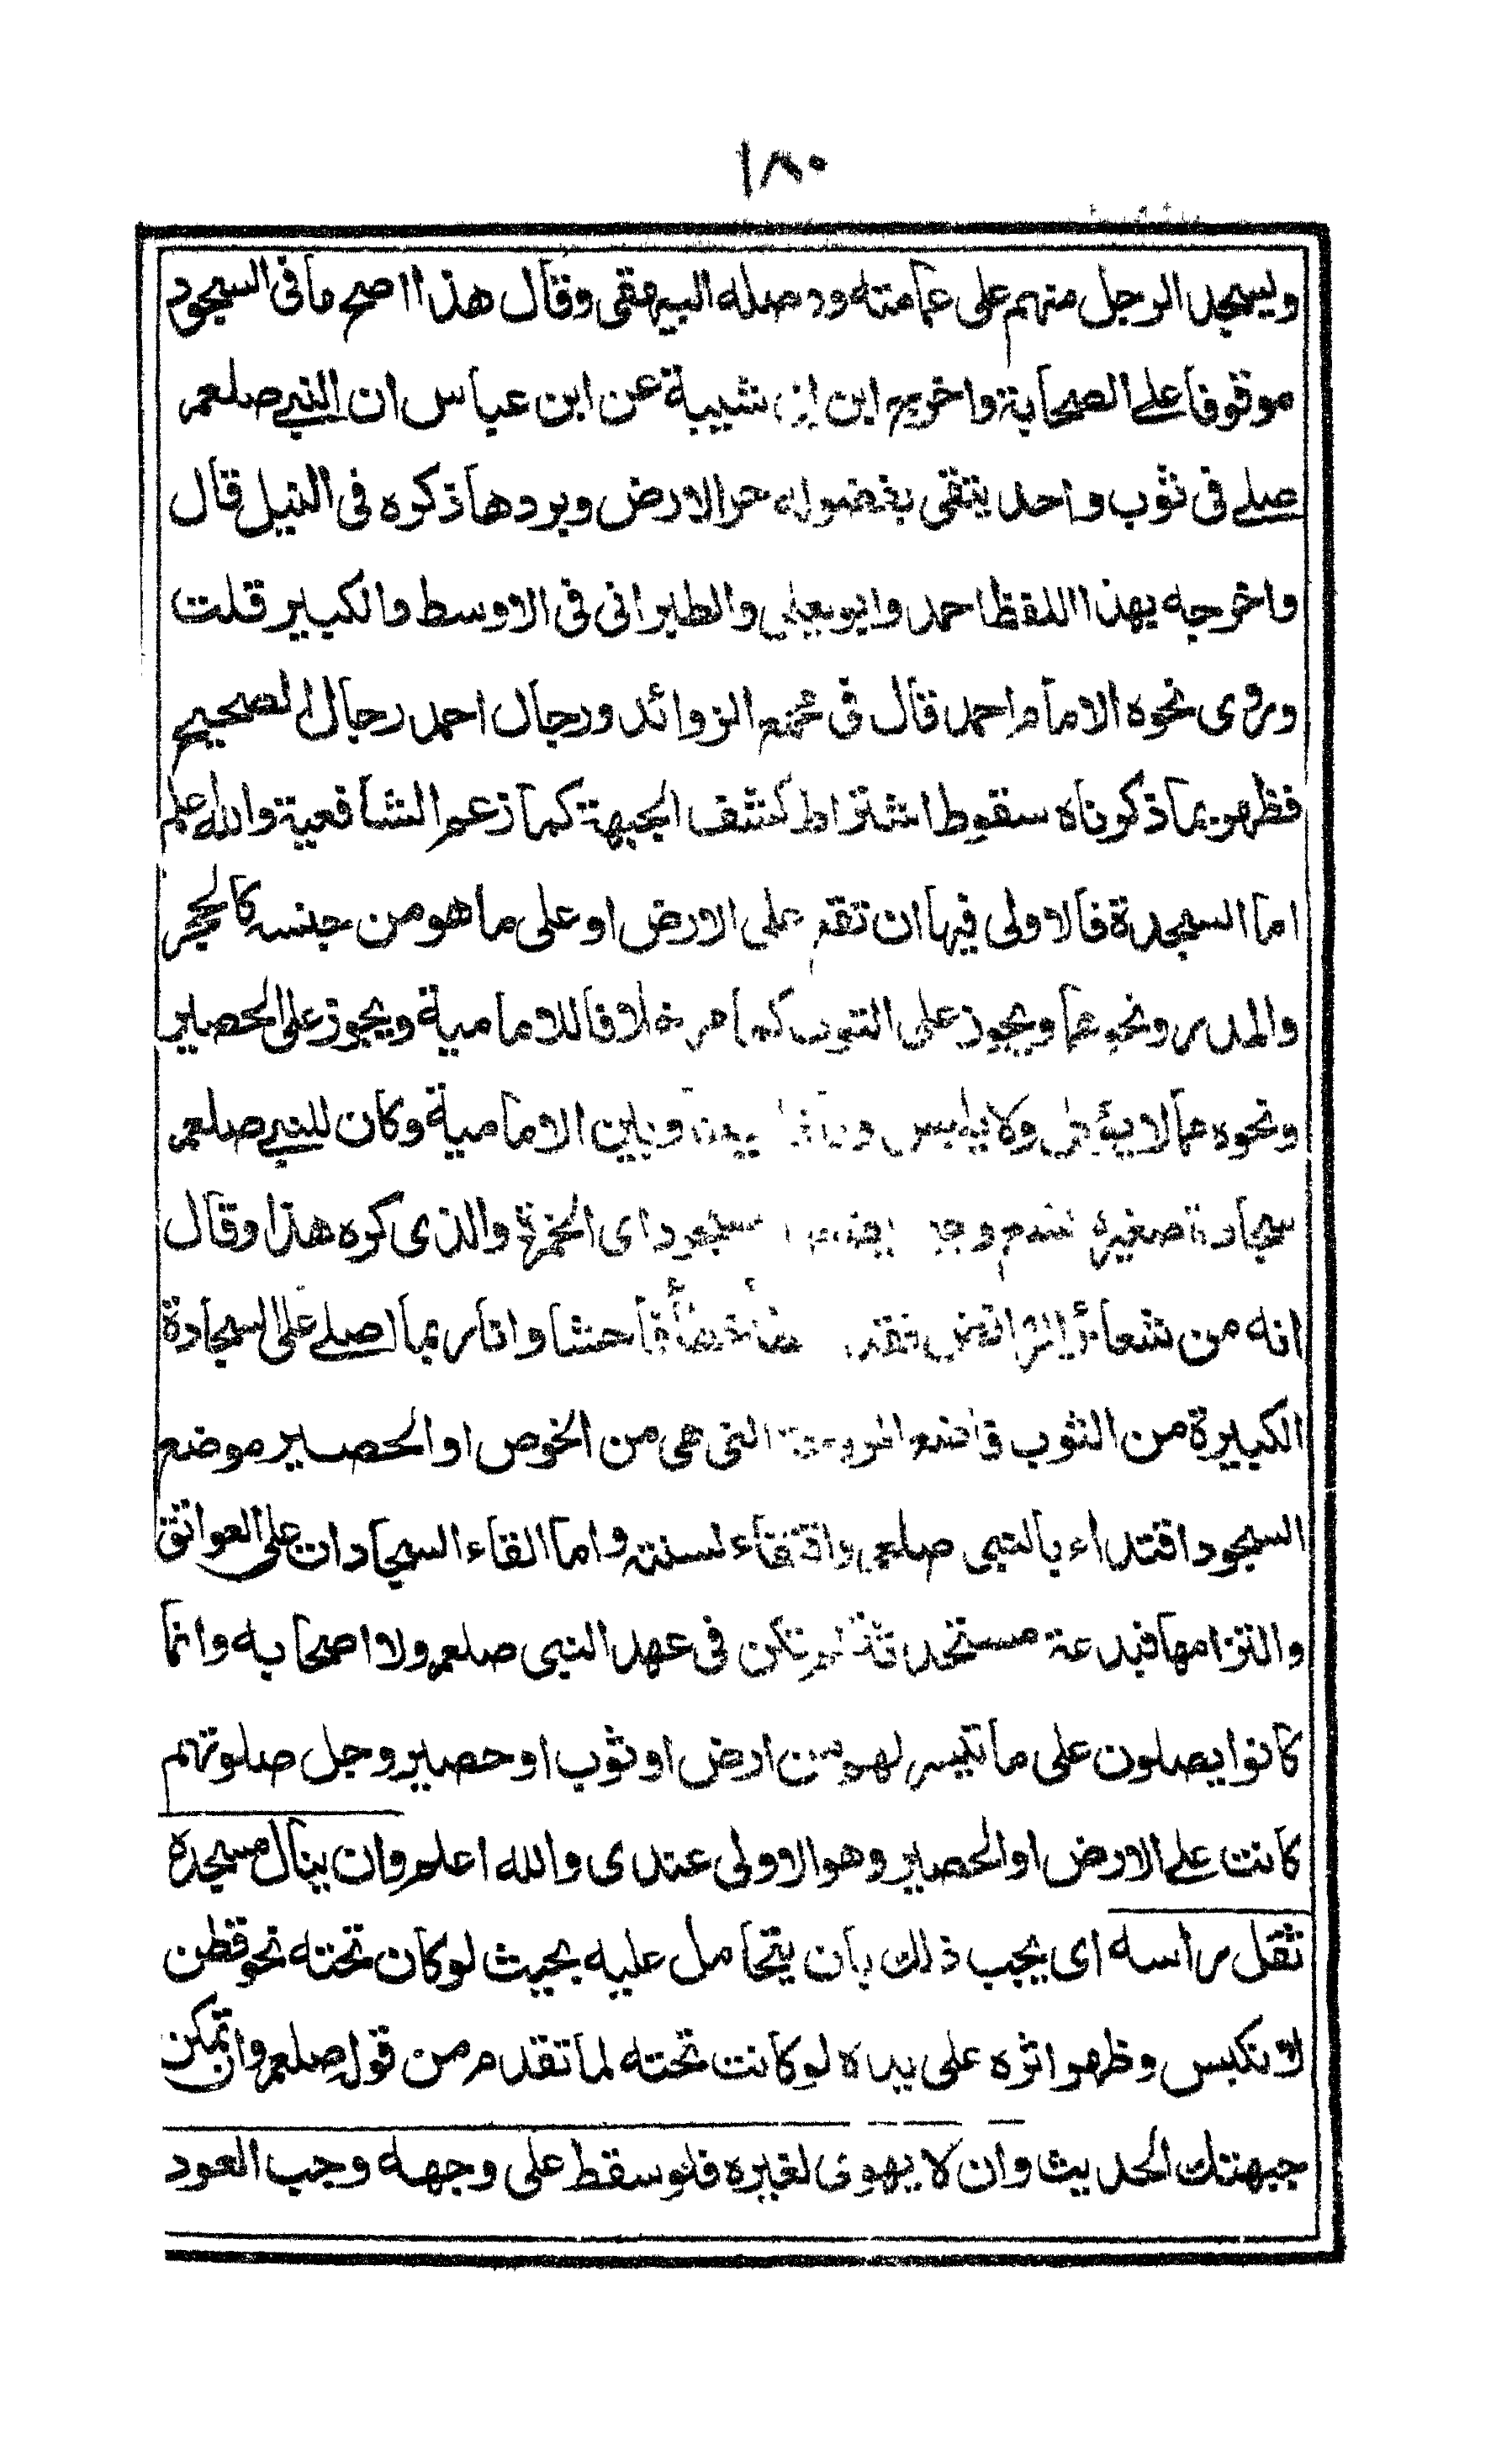 ١٨٠
ويسجد الرجل منهم على عمامته ووصله البيهقى وقال هذا اصح ما فى السجود
موقوفا على الصحابة واخرج ابن ابى شيبة عن ابن عباس ان النبى صلعم
صلى فى ثوب واحد يتقى بفضوله حر الارض وبردها ذكره فى النيل قال
واخرجه بهذا اللفظ احمد وابو يعلى والطبرانى فى الاوسط والكبير قلت
وروى نحوه الامام احمد قال فى مجمع الزوائد ورجال احمد رجال الصحيح
فظهر بما ذكرناه سقوط اشتراط كشف الجبهة كما زعم الشافعية والله اعلم
اما السجدة فالاولى فيها ان تقع على الارض او على ما هو من جنسه كالحجر
والمدر ونحوهما ويجوز على الثوب كما مر خلافا للامامية ويجوز على الحصير
ونحوه مما لا يؤكل ولا يلبس بيننا وبين الامامية وكان للنبى صلعم
سجادة صغيرة سجود اى الخمرة والذى كره هذا وقال
انه من شعائر الروافض فقد خطأ فاحشا وانا ربما اصلى على السجادة
الكبيرة من الثوب فاضع المروحة التى هى من الخوص او الحصير موضع
السجود اقتداء بالنبى صلعم واقتفاء لسنته واما القاء السجادات على العواتق
والتزامها فبدعة مستحدثة لم تكن فى عهد النبى صلعم ولا اصحابه وانما
كانوا يصلون على ما تيسر لهم من ارض او ثوب او حصير وجل صلوتهم
كانت على الارض او الحصير وهو الاولى عندى والله اعلم وان ينال مسجده
ثقل راسه اى يجب ذلك بان يتحامل عليه بحيث لو كان تحته نحو قطن
لانكبس وظهر اثره على يده لو كانت تحته لما تقدم من قوله صلعم وان تمكن
جبهتك الحديث وان لا يهوى لغيره فلو سقط على وجهه وجب العود